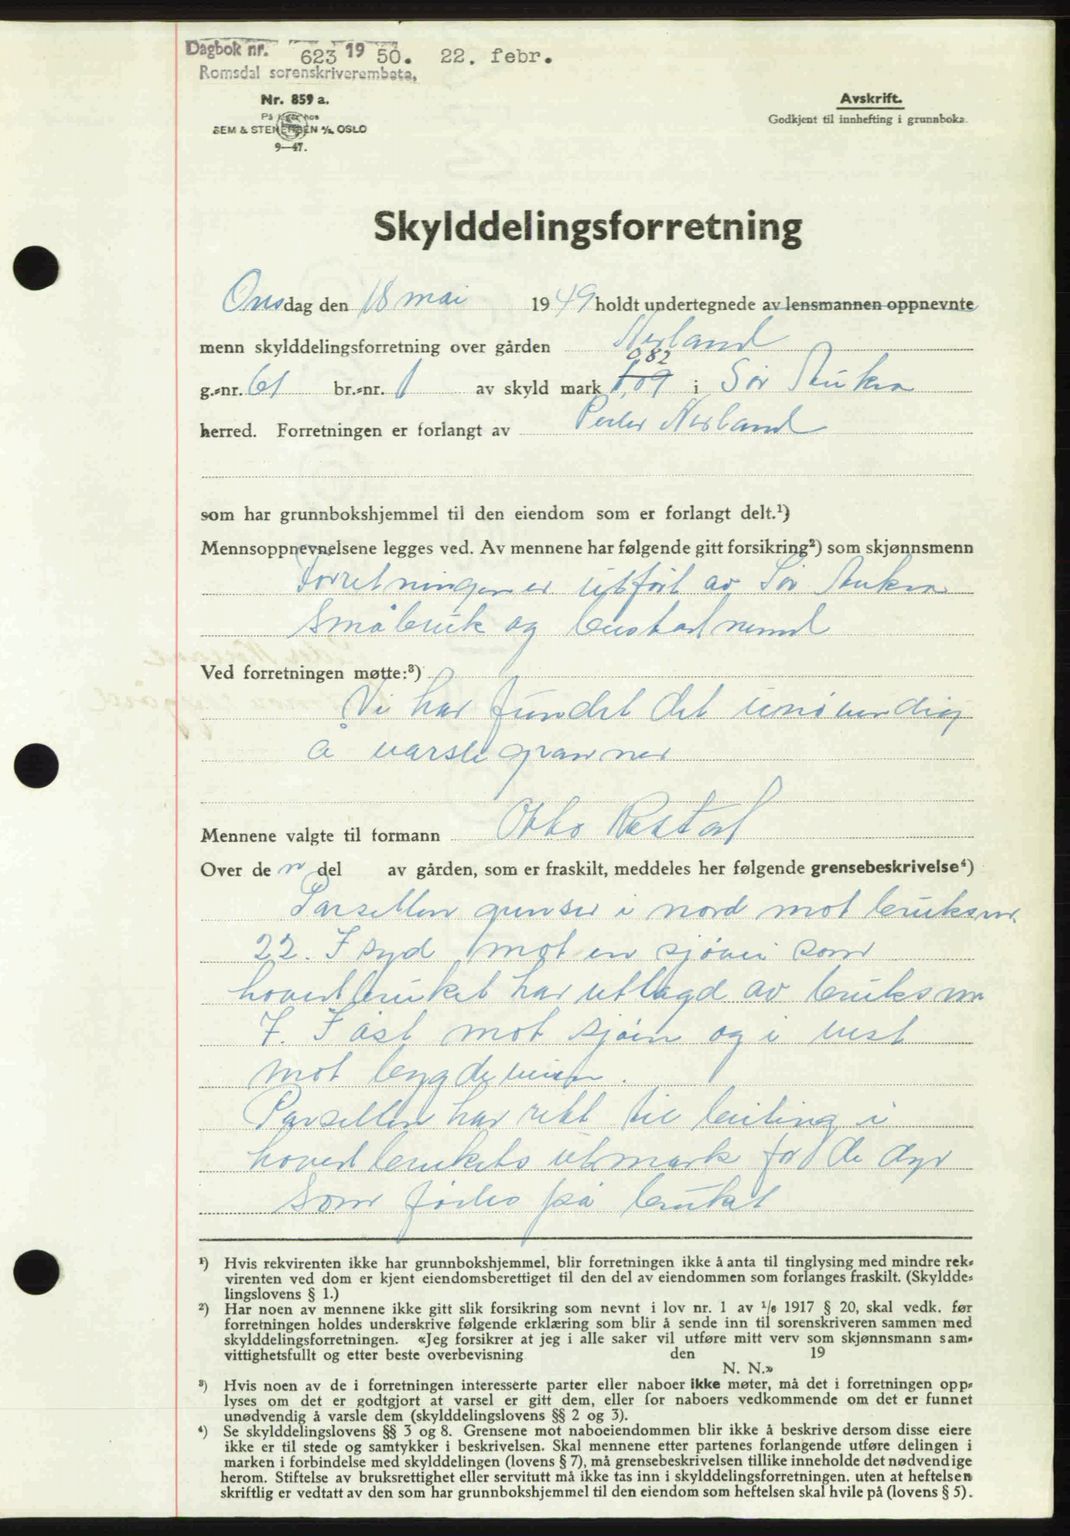 Dagbok nr. 623 1950. 22. febr.
Romsdal sorenskriverembete,
Nr. 859 a.
På lager hos
SEM & STENERSEN A/S, OSLO
9—47.
Avskrift.
Godkjent til innhefting i grunnboka.
Skylddelingsforretning
Onsdag den 18 mai 1949 holdt undertegnede av lensmannen oppnevnte
menn skylddelingsforretning over gården Nerland
0,82
g.-nr. 61 br.-nr. 1 av skyld mark 1,09 i Sør Aukra
herred. Forretningen er forlangt av Peder Nerland
som har grunnbokshjemmel til den eiendom som er forlangt delt.¹)
Mennsoppnevnelsene legges ved. Av mennene har følgende gitt forsikring²) som skjønnsmenn
Forretningen er utført av Sør Aukra
Småbruk og bustadnemd
Ved forretningen møtte:³)
Vi har fundet det unøvendig
å varsle grannner
Mennene valgte til formann Otto Rakstad
Over de n del av gården, som er fraskilt, meddeles her følgende grensebeskrivelse⁴)
Parsellen grenser i nord mot bruksnr.
22. I syd mot en sjøvei som
hovedbruket har utlagd av bruksnr
7. I åst mot sjøen og i vest
mot bygdeveien.
Parsellen har rett til beiting i
hovedbrukets utmark for de dyr
som fødes på bruket
¹) Hvis rekvirenten ikke har grunnbokshjemmel, blir forretningen ikke å anta til tinglysing med mindre rek-
virenten ved dom er kjent eiendomsberettiget til den del av eiendommen som forlanges fraskilt. (Skyldde-
lingslovens § 1.)
²) Har noen av mennene ikke gitt slik forsikring som nevnt i lov nr. 1 av 1/6 1917 § 20, skal vedk. før
forretningen holdes underskrive følgende erklæring som blir å sende inn til sorenskriveren sammen med
skylddelingsforretningen. «Jeg forsikrer at jeg i alle saker vil utføre mitt verv som skjønnsmann sam-
vittighetsfullt og etter beste overbevisning den 19
N. N.»
³) Hvis noen av de i forretningen interesserte parter eller naboer ikke møter, må det i forretningen opp-
lyses om det er godtgjort at varsel er gitt dem, eller for naboers vedkommende om det er funnet
unødvendig å varsle dem (skylddelingslovens §§ 2 og 3).
⁴) Se skylddelingslovens §§ 3 og 8. Grensene mot naboeiendommen blir ikke å beskrive dersom disse eiere
ikke er til stede og samtykker i beskrivelsen. Skal mennene etter partenes forlangende utføre delingen i
marken i forbindelse med skylddelingen (lovens § 7), må grensebeskrivelsen tillike inneholde det nødvendige
herom. Stiftelse av bruksrettighet eller servitutt må ikke tas inn i skylddelingsforretningen, uten at heftelsen
skriftlig er vedtatt av den som har grunnbokshjemmel til den eiendom som heftelsen skal hvile på (lovens § 5).